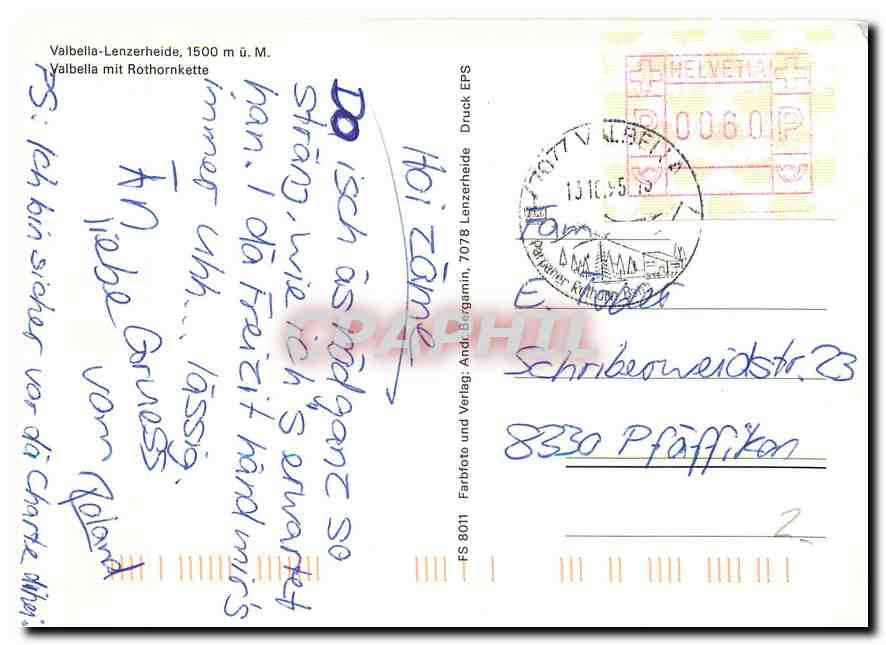 Valbella-Lenzerheide, 1500 m ü. M.
Valbella mit Rothornkette
Hoi zäme
Da isch äs nöd ganz so
sträng, wie ich's erwartet
han. I dä Freizit händ mir's
immer uhh.... lässig.
Än liebe Gruess
vom Roland
PS: Ich bin sicher vor dä Charte dihei.
FS 8011 Farbfoto und Verlag: Andr. Bergamin, 7078 Lenzerheide Druck EPS
HELVETIA
P 0060 P
7077 VALBELLA
13.10.95
Parpaner Rothorn
Fam.
E.
Schriberweidstr. 23
8330 Pfäffikon
2.
CPAPHIL